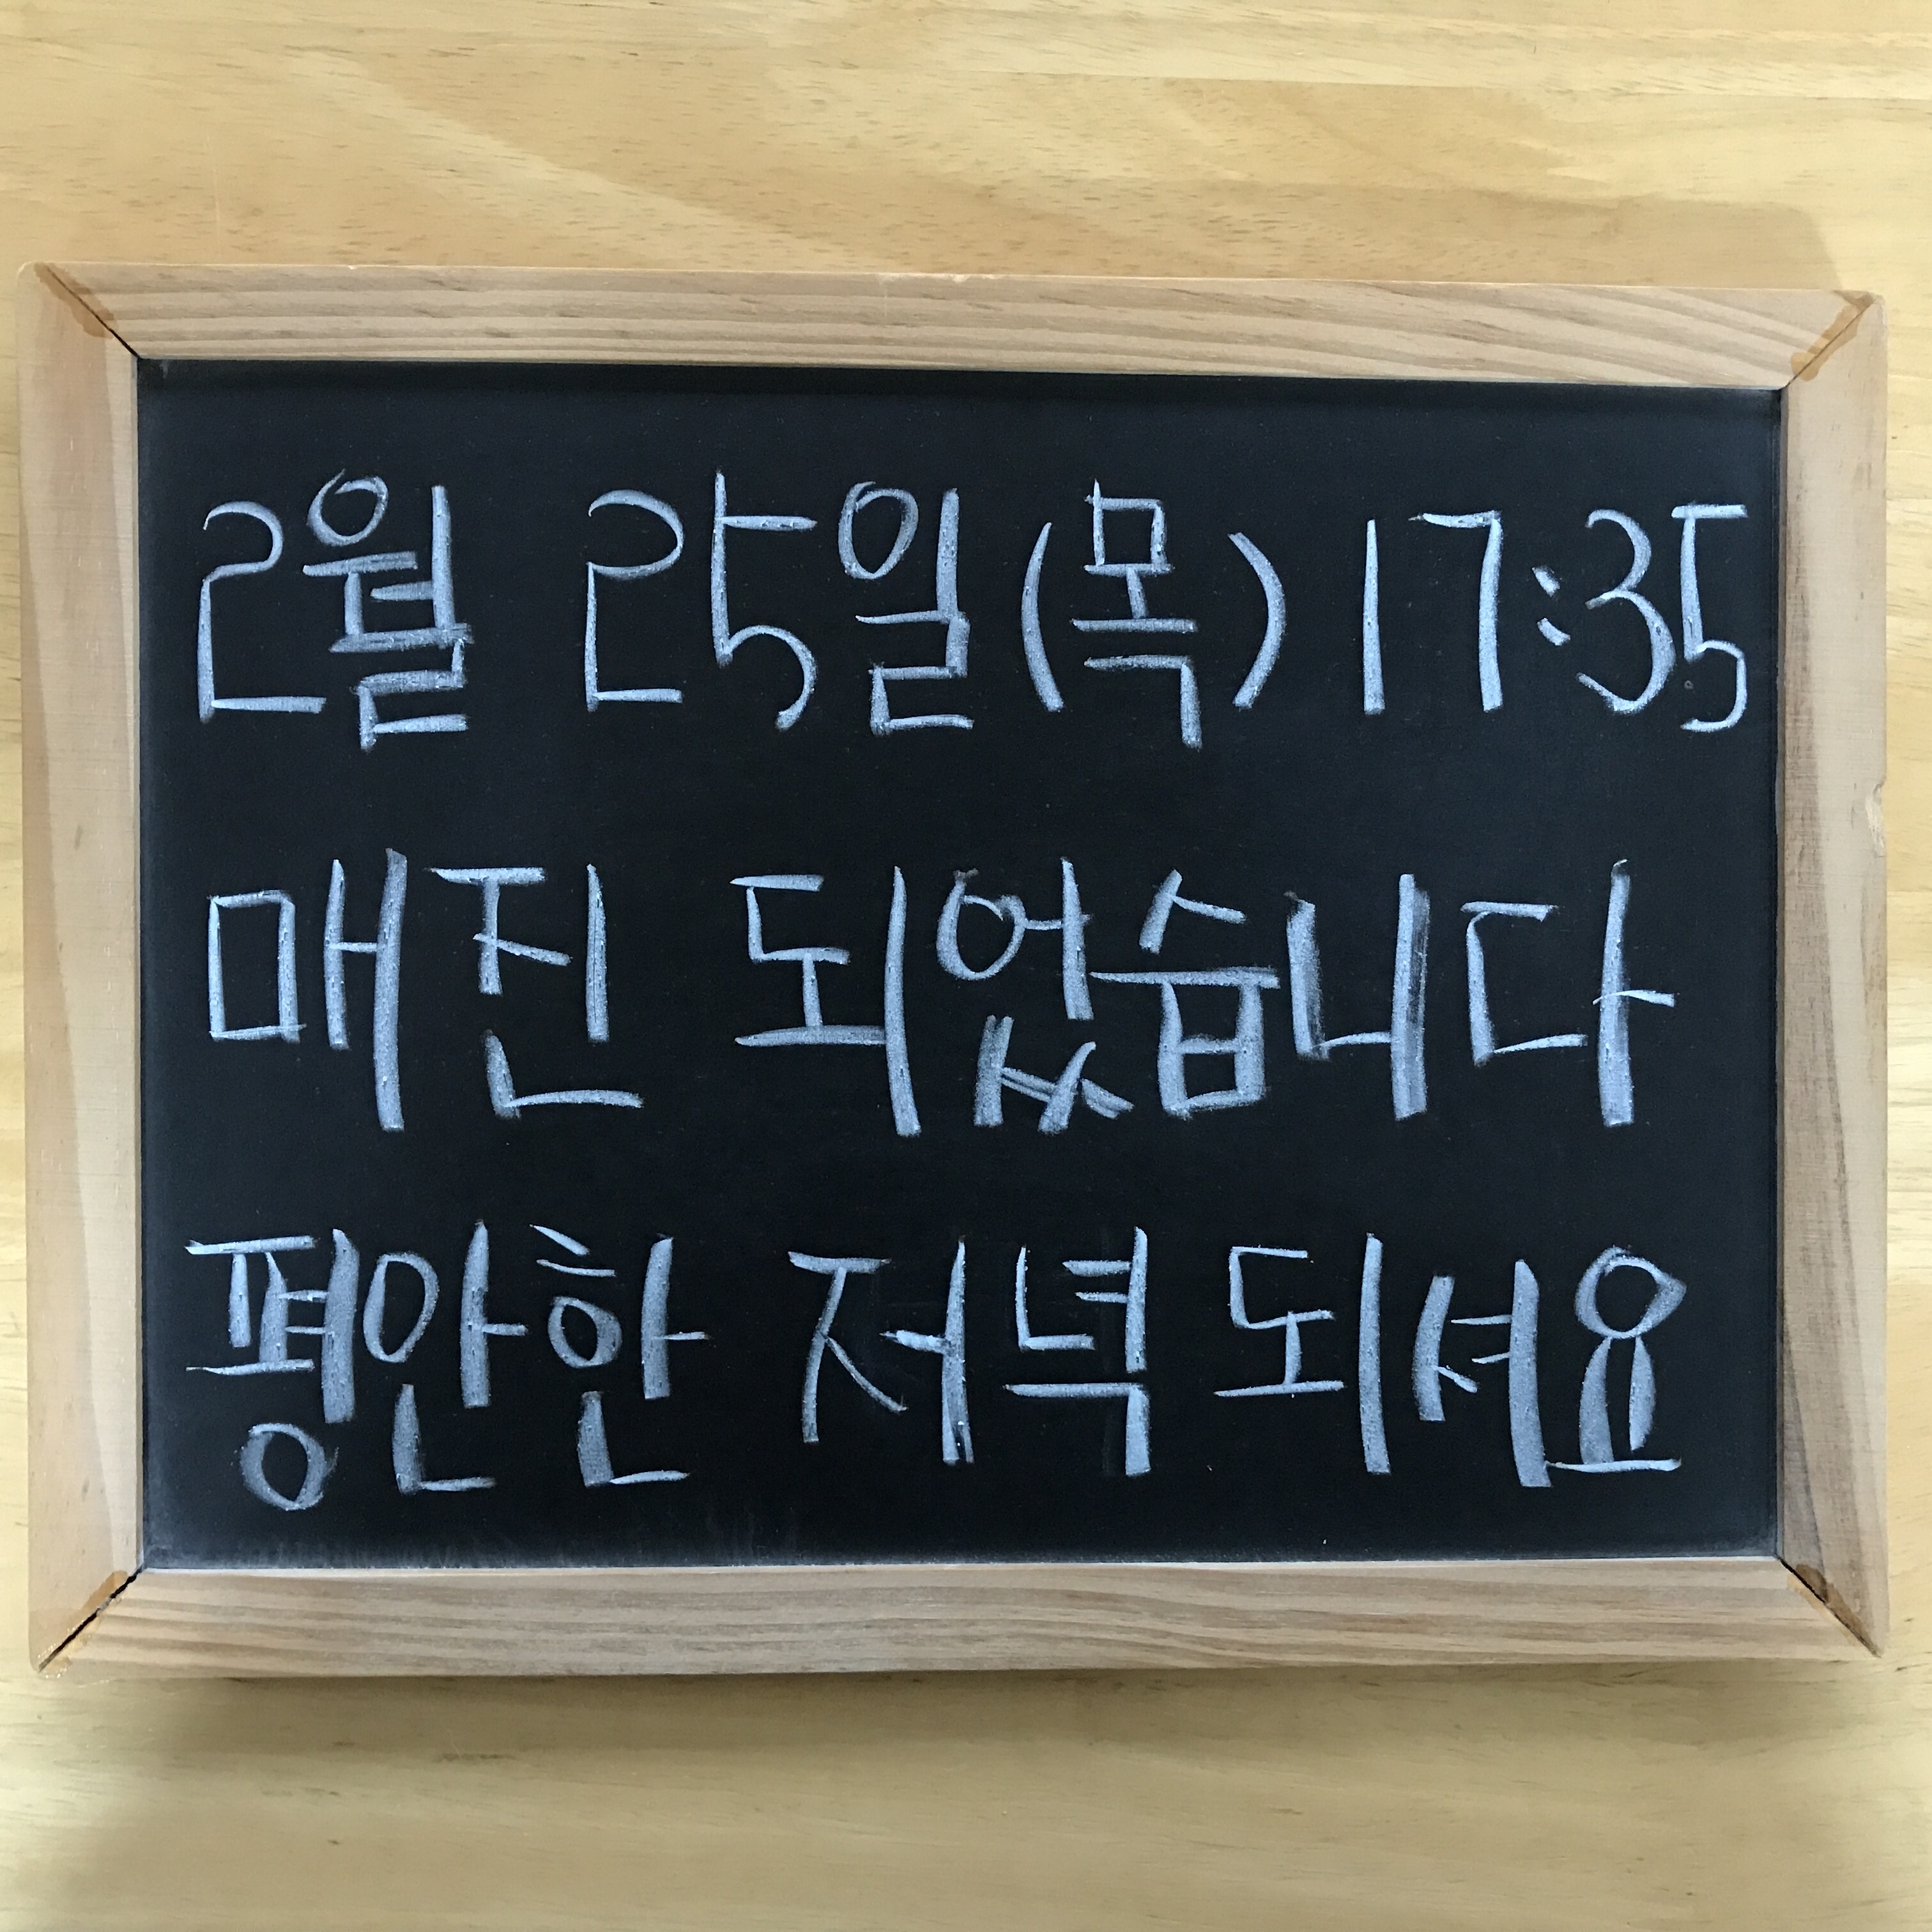 2월 25일(목) 17:35
매진 되었습니다
평안한 저녁 되셔요